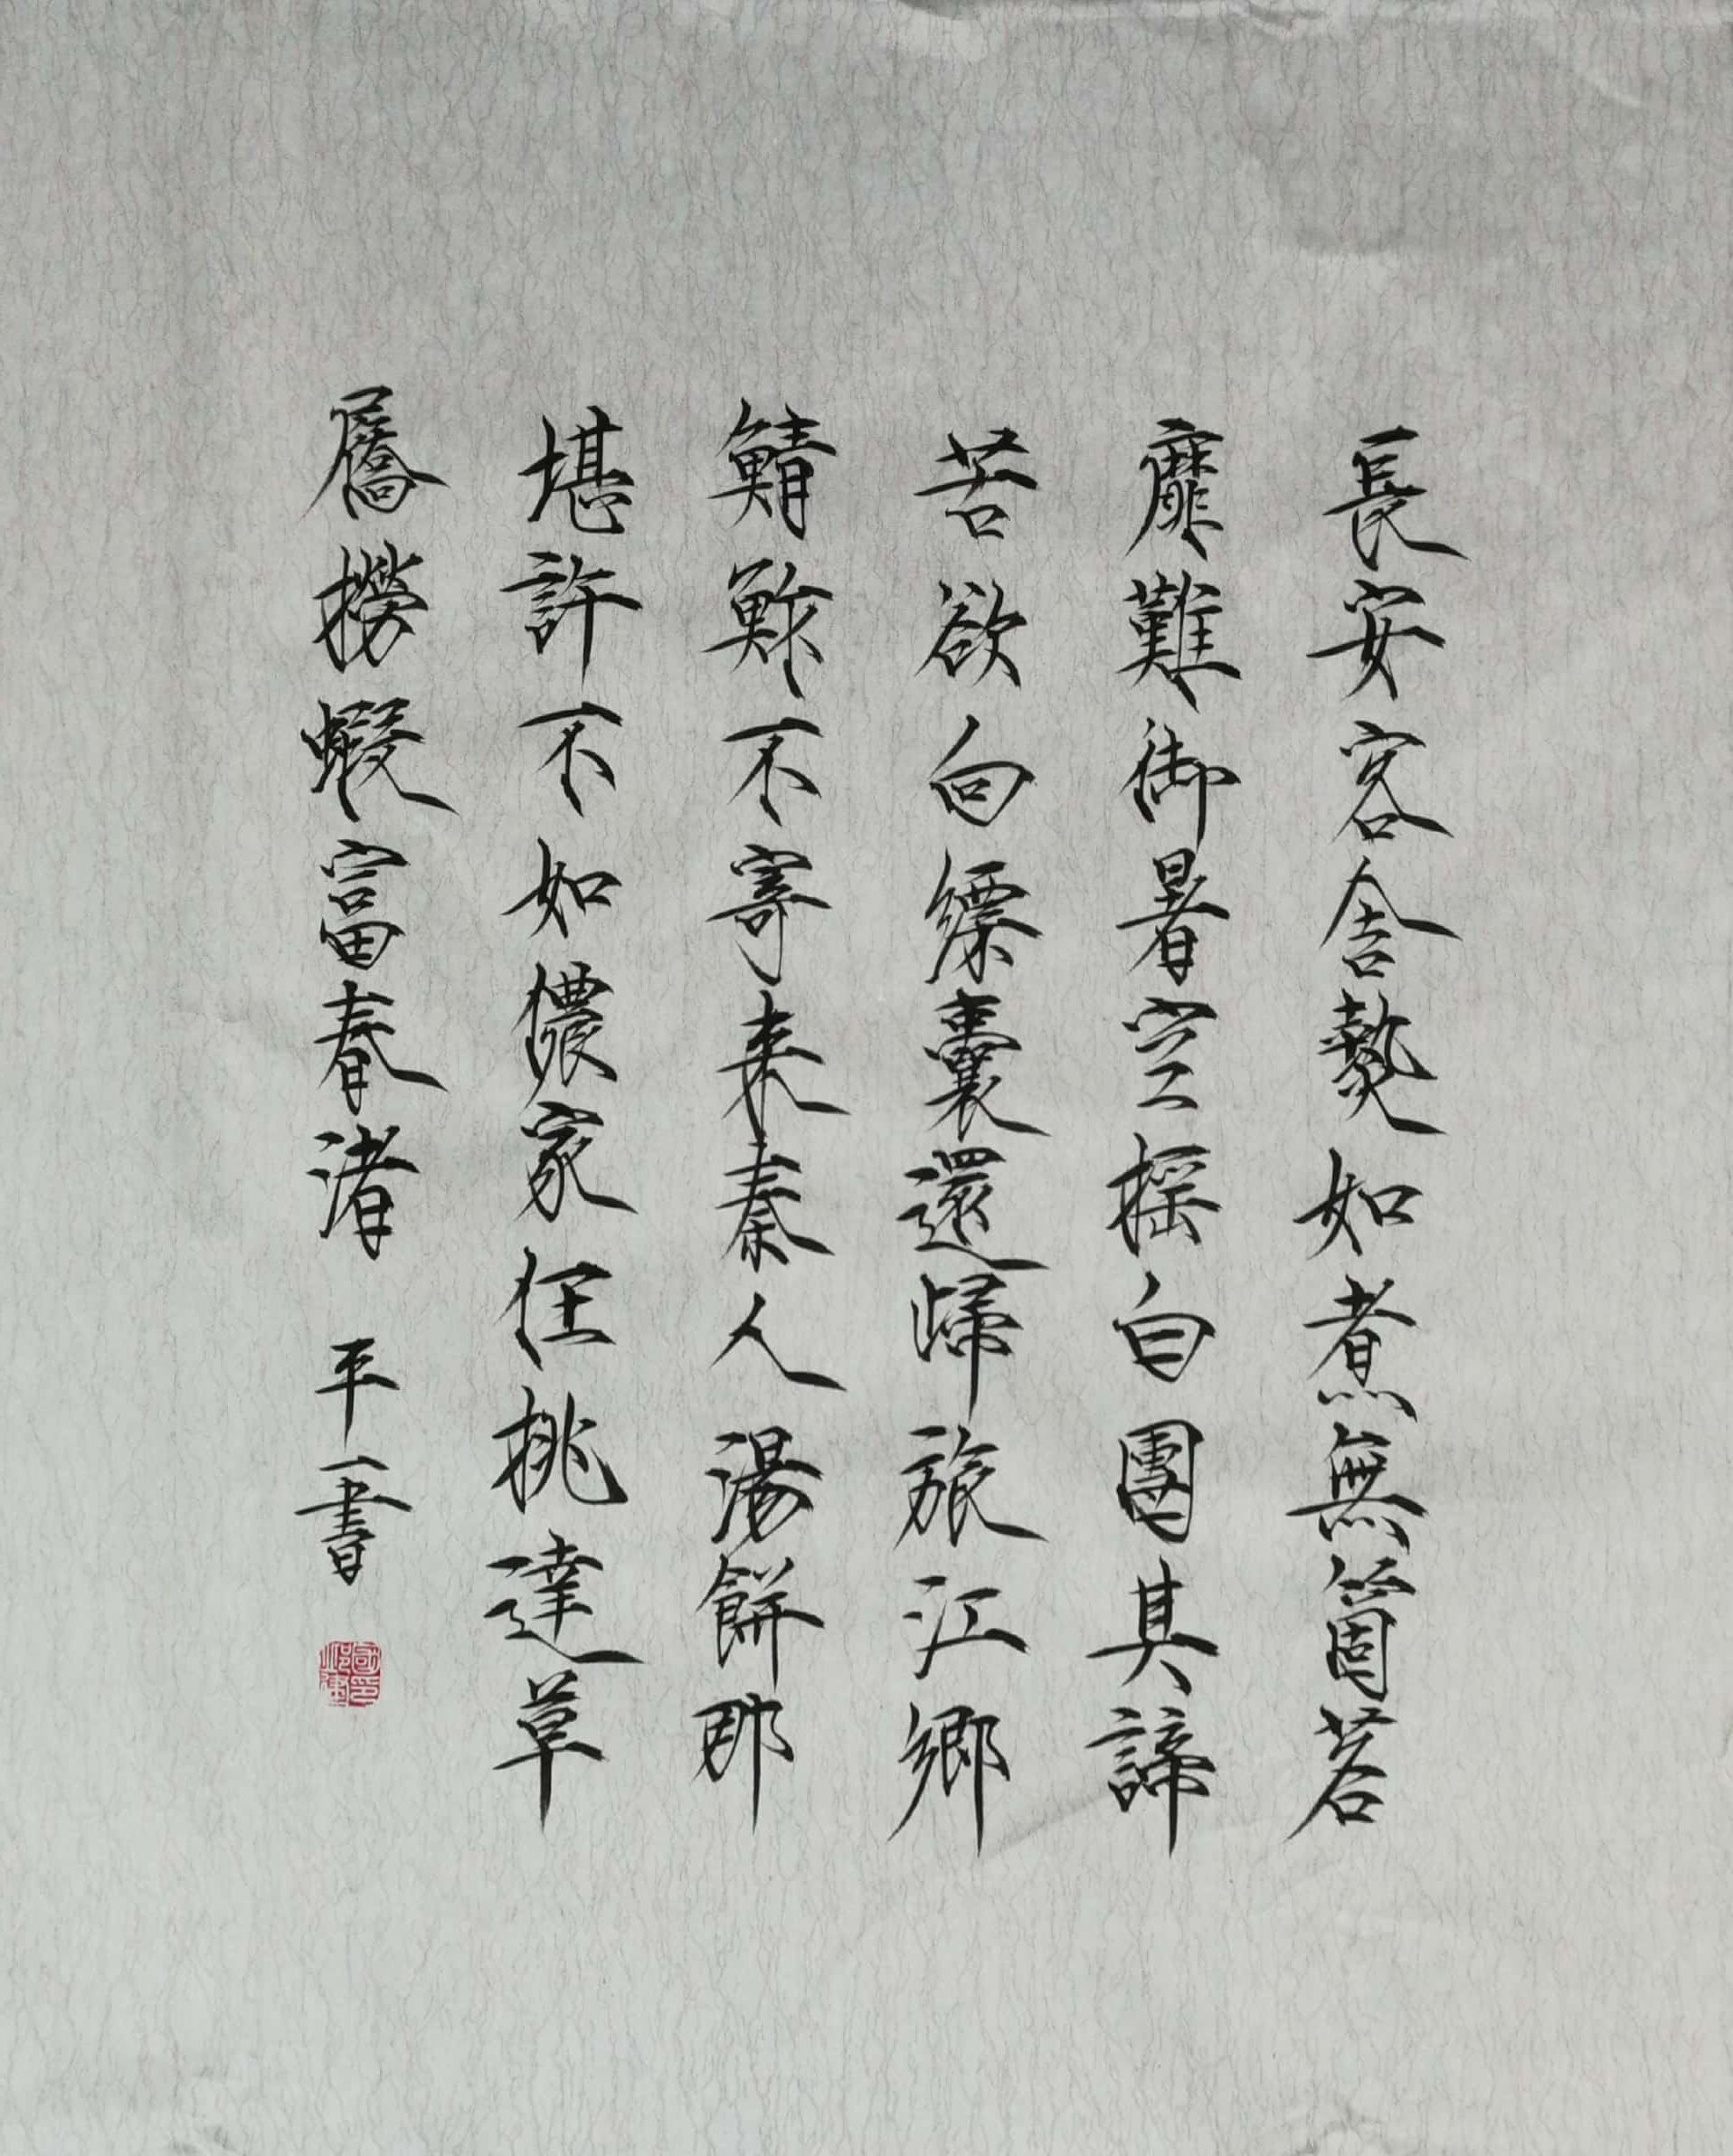 長安客舍熱如煮無箇茗
靡難御暑空摇白團其諦
苦欲向縹囊還歸旅江鄉
鯖鮓不寄来秦人湯餅那
堪許不如儂家任挑達草
屩撈蝦富春渚 平一書